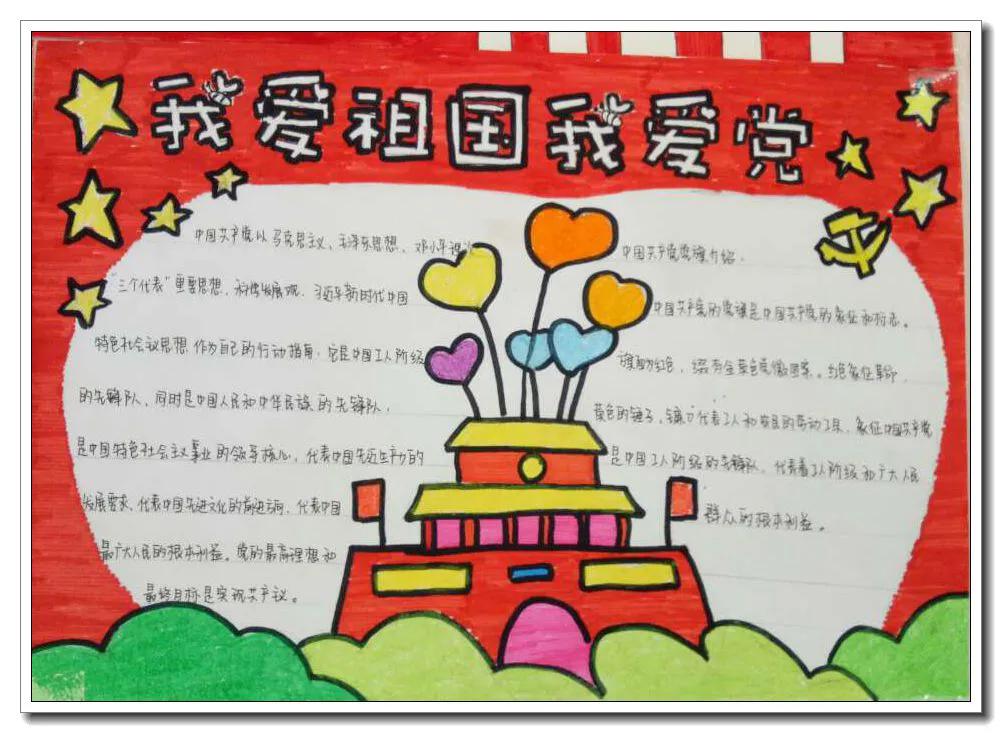 我爱祖国我爱党
中国共产党以马克思主义、毛泽东思想、邓小平理论
"三个代表"重要思想、科学发展观、习近平新时代中国
特色社会主义思想作为自己的行动指南。它是中国工人阶级
的先锋队,同时是中国人民和中华民族的先锋队,
是中国特色社会主义事业的领导核心,代表中国先进生产力的
发展要求、代表中国先进文化的前进方向、代表中国
最广大人民的根本利益。党的最高理想和
最终目标是实现共产议。
中国共产党党旗介绍。
中国共产党的党旗是中国共产党的象征和标志。
旗面为红色,缀有金黄色党徽图案。红色象征革命,
黄色的锤子、镰刀代表工人和农民的劳动工具,象征中国共产党
是中国工人阶级的先锋队,代表着工人阶级和广大人民
群众的根本利益。